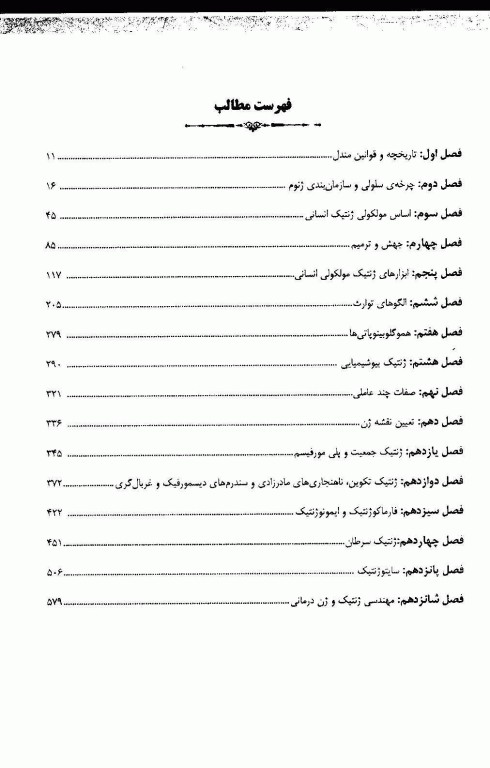 فهرست مطالب
فصل اول: تاریخچه و قوانین مندل ۱۱
فصل دوم: چرخه‌ی سلولی و سازمان‌بندی ژنوم ۱۶
فصل سوم: اساس مولکولی ژنتیک انسانی ۴۵
فصل چهارم: جهش و ترمیم ۸۵
فصل پنجم: ابزارهای ژنتیک مولکولی انسانی ۱۱۷
فصل ششم: الگوهای توارث ۲۰۵
فصل هفتم: هموگلوبینوپاتی‌ها ۲۷۹
فصل هشتم: ژنتیک بیوشیمیایی ۲۹۰
فصل نهم: صفات چند عاملی ۳۲۱
فصل دهم: تعیین نقشه ژن ۳۳۶
فصل یازدهم: ژنتیک جمعیت و پلی مورفیسم ۳۴۵
فصل دوازدهم: ژنتیک تکوین، ناهنجاری‌های مادرزادی و سندرم‌های دیسمورفیک و غربال‌گری ۳۷۲
فصل سیزدهم: فارماکوژنتیک و ایمونوژنتیک ۴۲۲
فصل چهاردهم:ژنتیک سرطان ۴۵۱
فصل پانزدهم: سایتوژنتیک ۵۰۶
فصل شانزدهم: مهندسی ژنتیک و ژن درمانی ۵۷۹